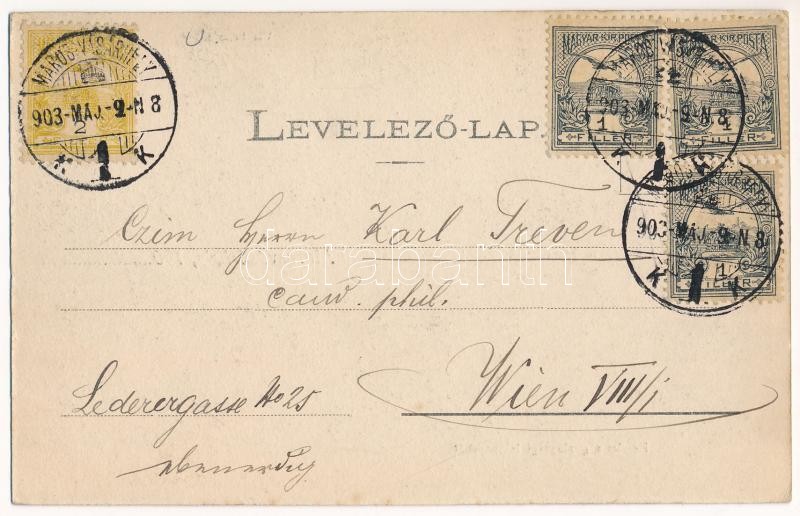 MAROS-VÁSÁRHELY
903-MÁJ.-9-N8
2
1
K
MAGYAR·KIR·POSTA
MAGYAR·KIR·POSTA
903-MÁJ.-9-N8
1
FILLÉR
1
K
LEVELEZŐ-LAP.
903-MÁJ.-9-N8
1
FILLÉR
K 1 K
Czim Herrn Karl Treven
darabanth
cand. phil.
Wien VIII/1
Lederergasse No 25
ebenerdig